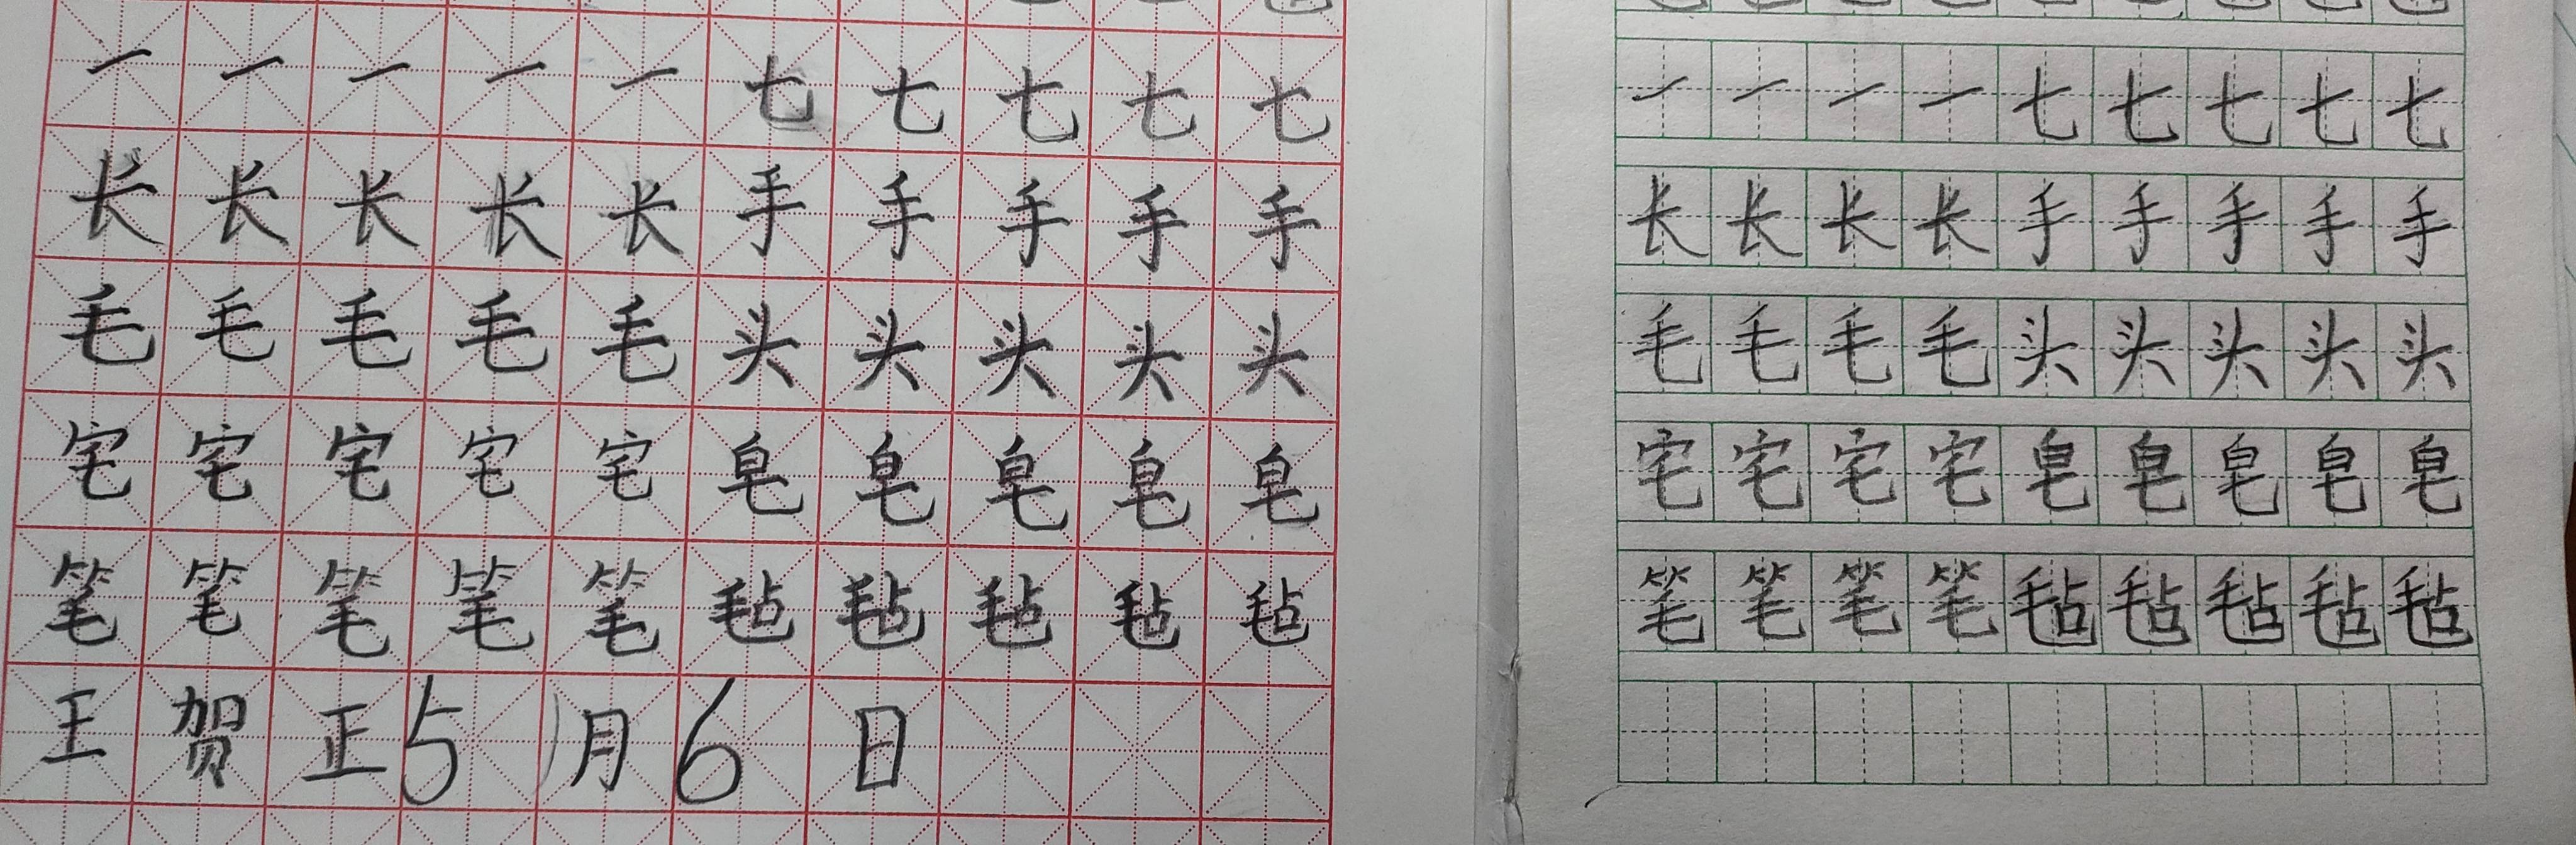 一一一一一七七七七七
长长长长长手手手手手
毛毛毛毛毛头头头头头
宅宅宅宅宅皂皂皂皂皂
笔笔笔笔笔毡毡毡毡毡
王贺正5月6日
一一一一七七七七七
长长长长手手手手手
毛毛毛毛头头头头头
宅宅宅宅皂皂皂皂皂
笔笔笔笔毡毡毡毡毡